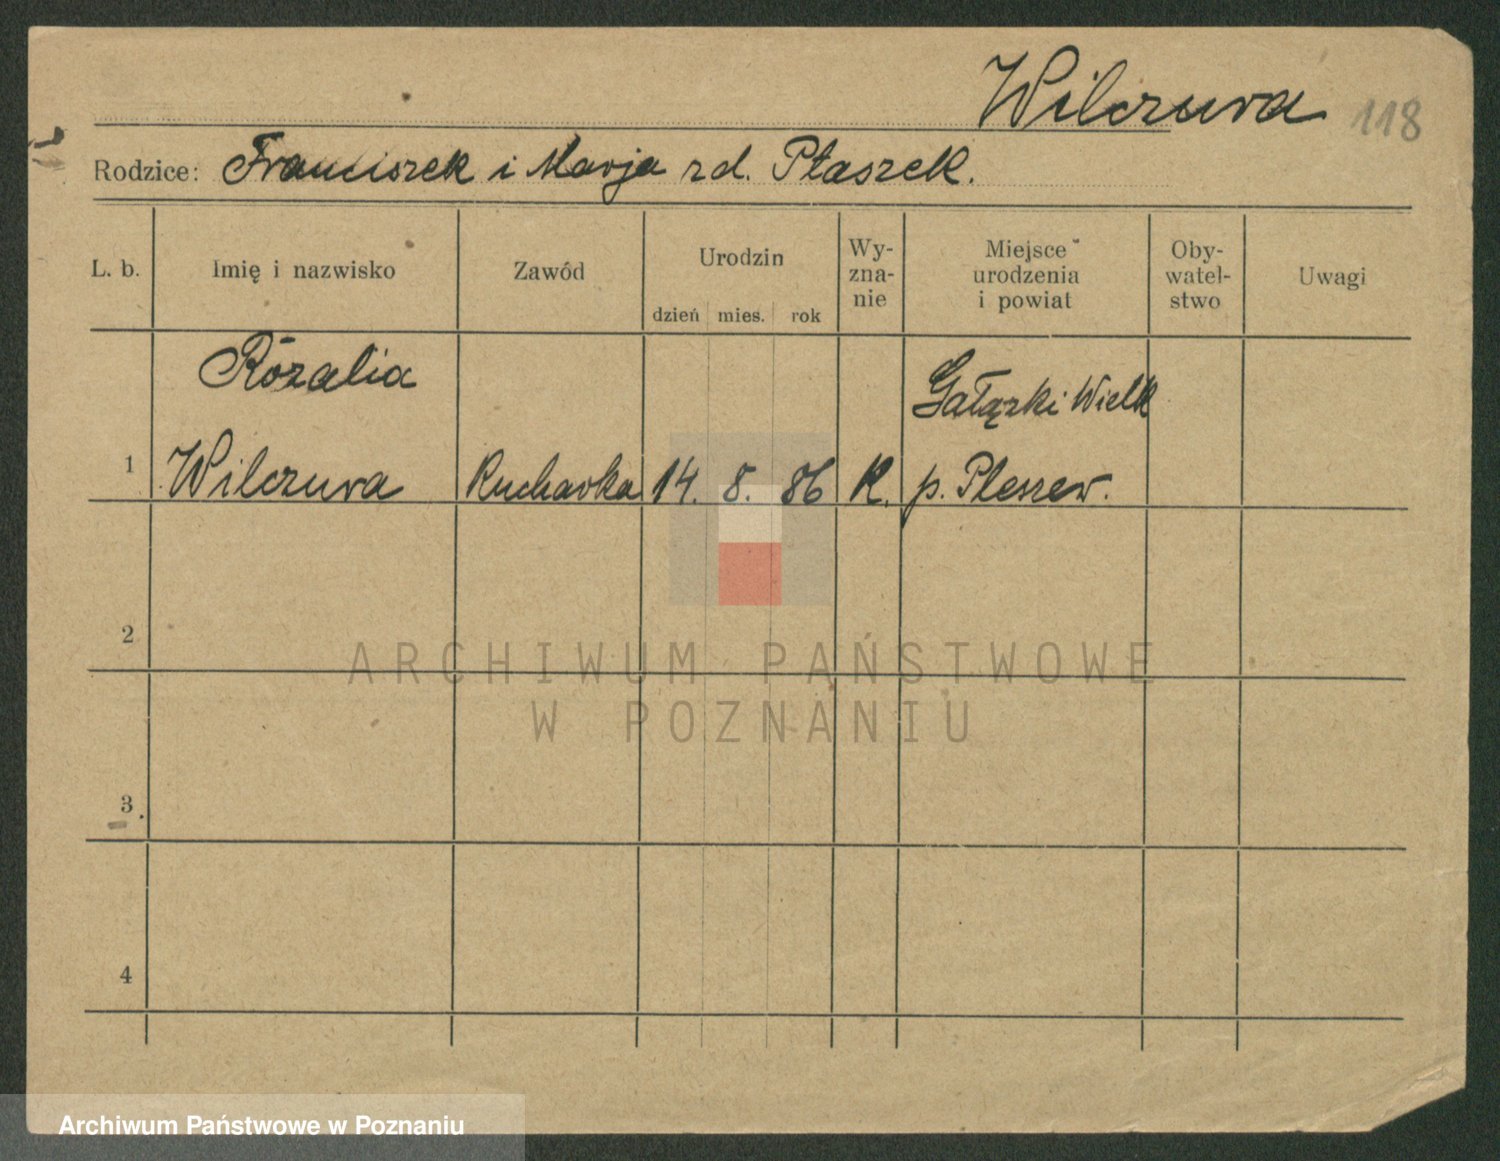 Wilczura 118
Rodzice: Franciszek i Marja zd. Ptaszek.
L. b. Imię i nazwisko Zawód Urodzin Wy- Miejsce Oby- Uwagi
zna- urodzenia watel-
dzień mies. rok nie i powiat stwo
Rózalia Gałązki Wielk
1 Wilczura Kucharka 14. 8. 86 K. p. Pleszew.
2
ARCHIWUM PAŃSTWOWE
W POZNANIU
3
4
Archiwum Państwowe w Poznaniu